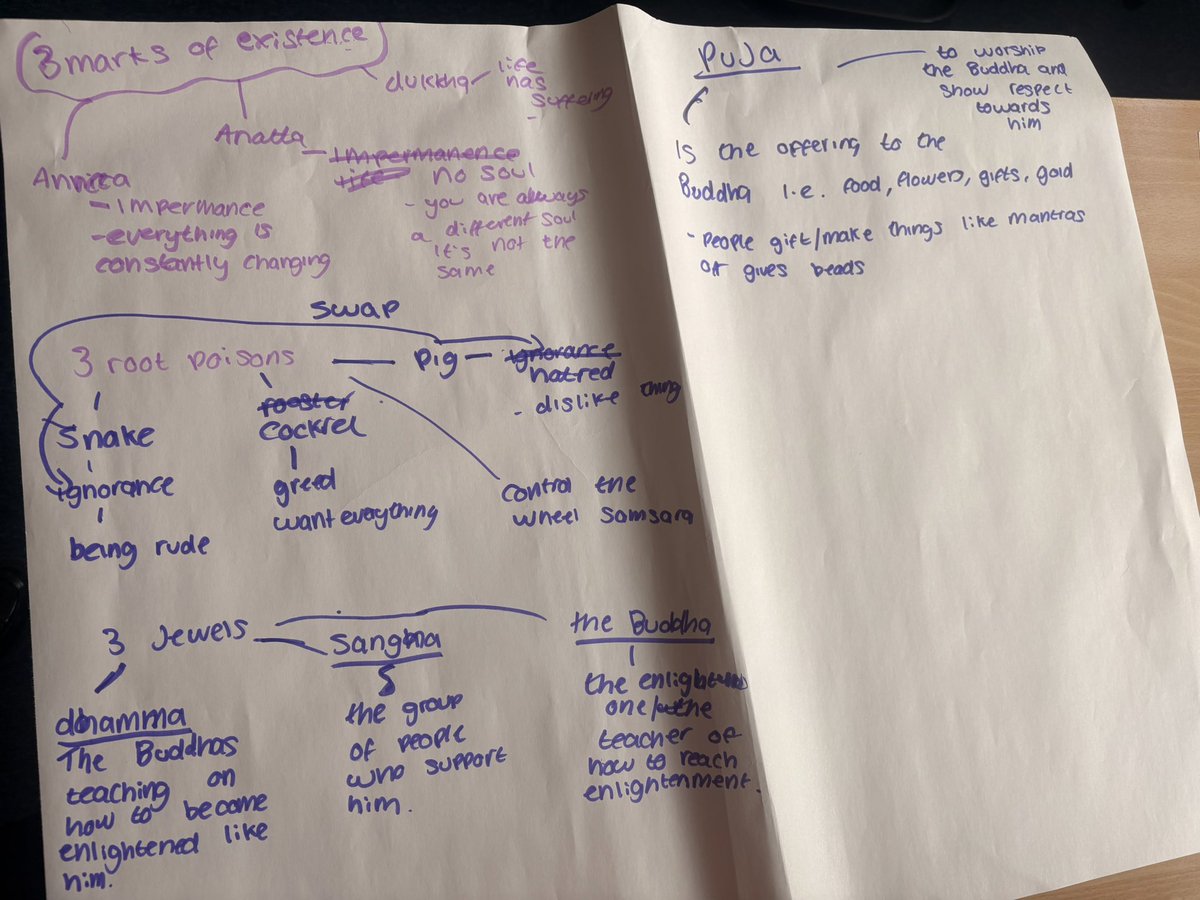 3 marks of existence
dukkha - life
has
suffering
Anatta
- Impermanence
life no soul
- you are always
a different soul
it's not the
same
Annica
- Impermance
- everything is
constantly changing
swap
3 root poisons — Pig — ignorance
hatred
- dislike thing
Snake
ignorance
being rude
rooster
Cockrel
greed
want everything
control the
wheel Samsara
3 Jewels
dhamma
The Buddhas
teaching on
how to become
enlightened like
him.
Sangha
the group
of people
who support
him.
the Buddha
the enlightened
one/the
teacher of
how to reach
enlightenment.
Puja
to worship
the Buddha and
show respect
towards
him
Is the offering to the
Buddha i.e. food, flowers, gifts, gold
- people gift/make things like mantras
or gives beads